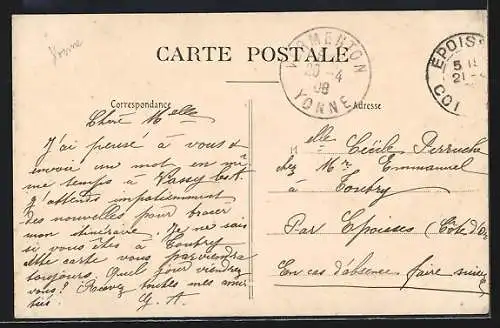 Yonne
CARTE POSTALE
VERMENTON
20 -4
08
YONNE
EPOISS
21
CO
Correspondance
Adresse
Chère Melle
J'ai pensé à vous et
envoie un mot en mê
me temps à Vassy et
j'attends impatiemment
des nouvelles pour tracer
mon itinéraire. Je ne sais
si vous êtes à Toutry
cette carte vous parviendra
toujours. Quel jour viendrez
vous? Recevez toutes mes ami
tiés. G. A.
Melle Cécile Perruche
chez Mr Emmanuel
à Toutry
Par Epoisses (Côte d'Or)
En cas d'absence faire suivre